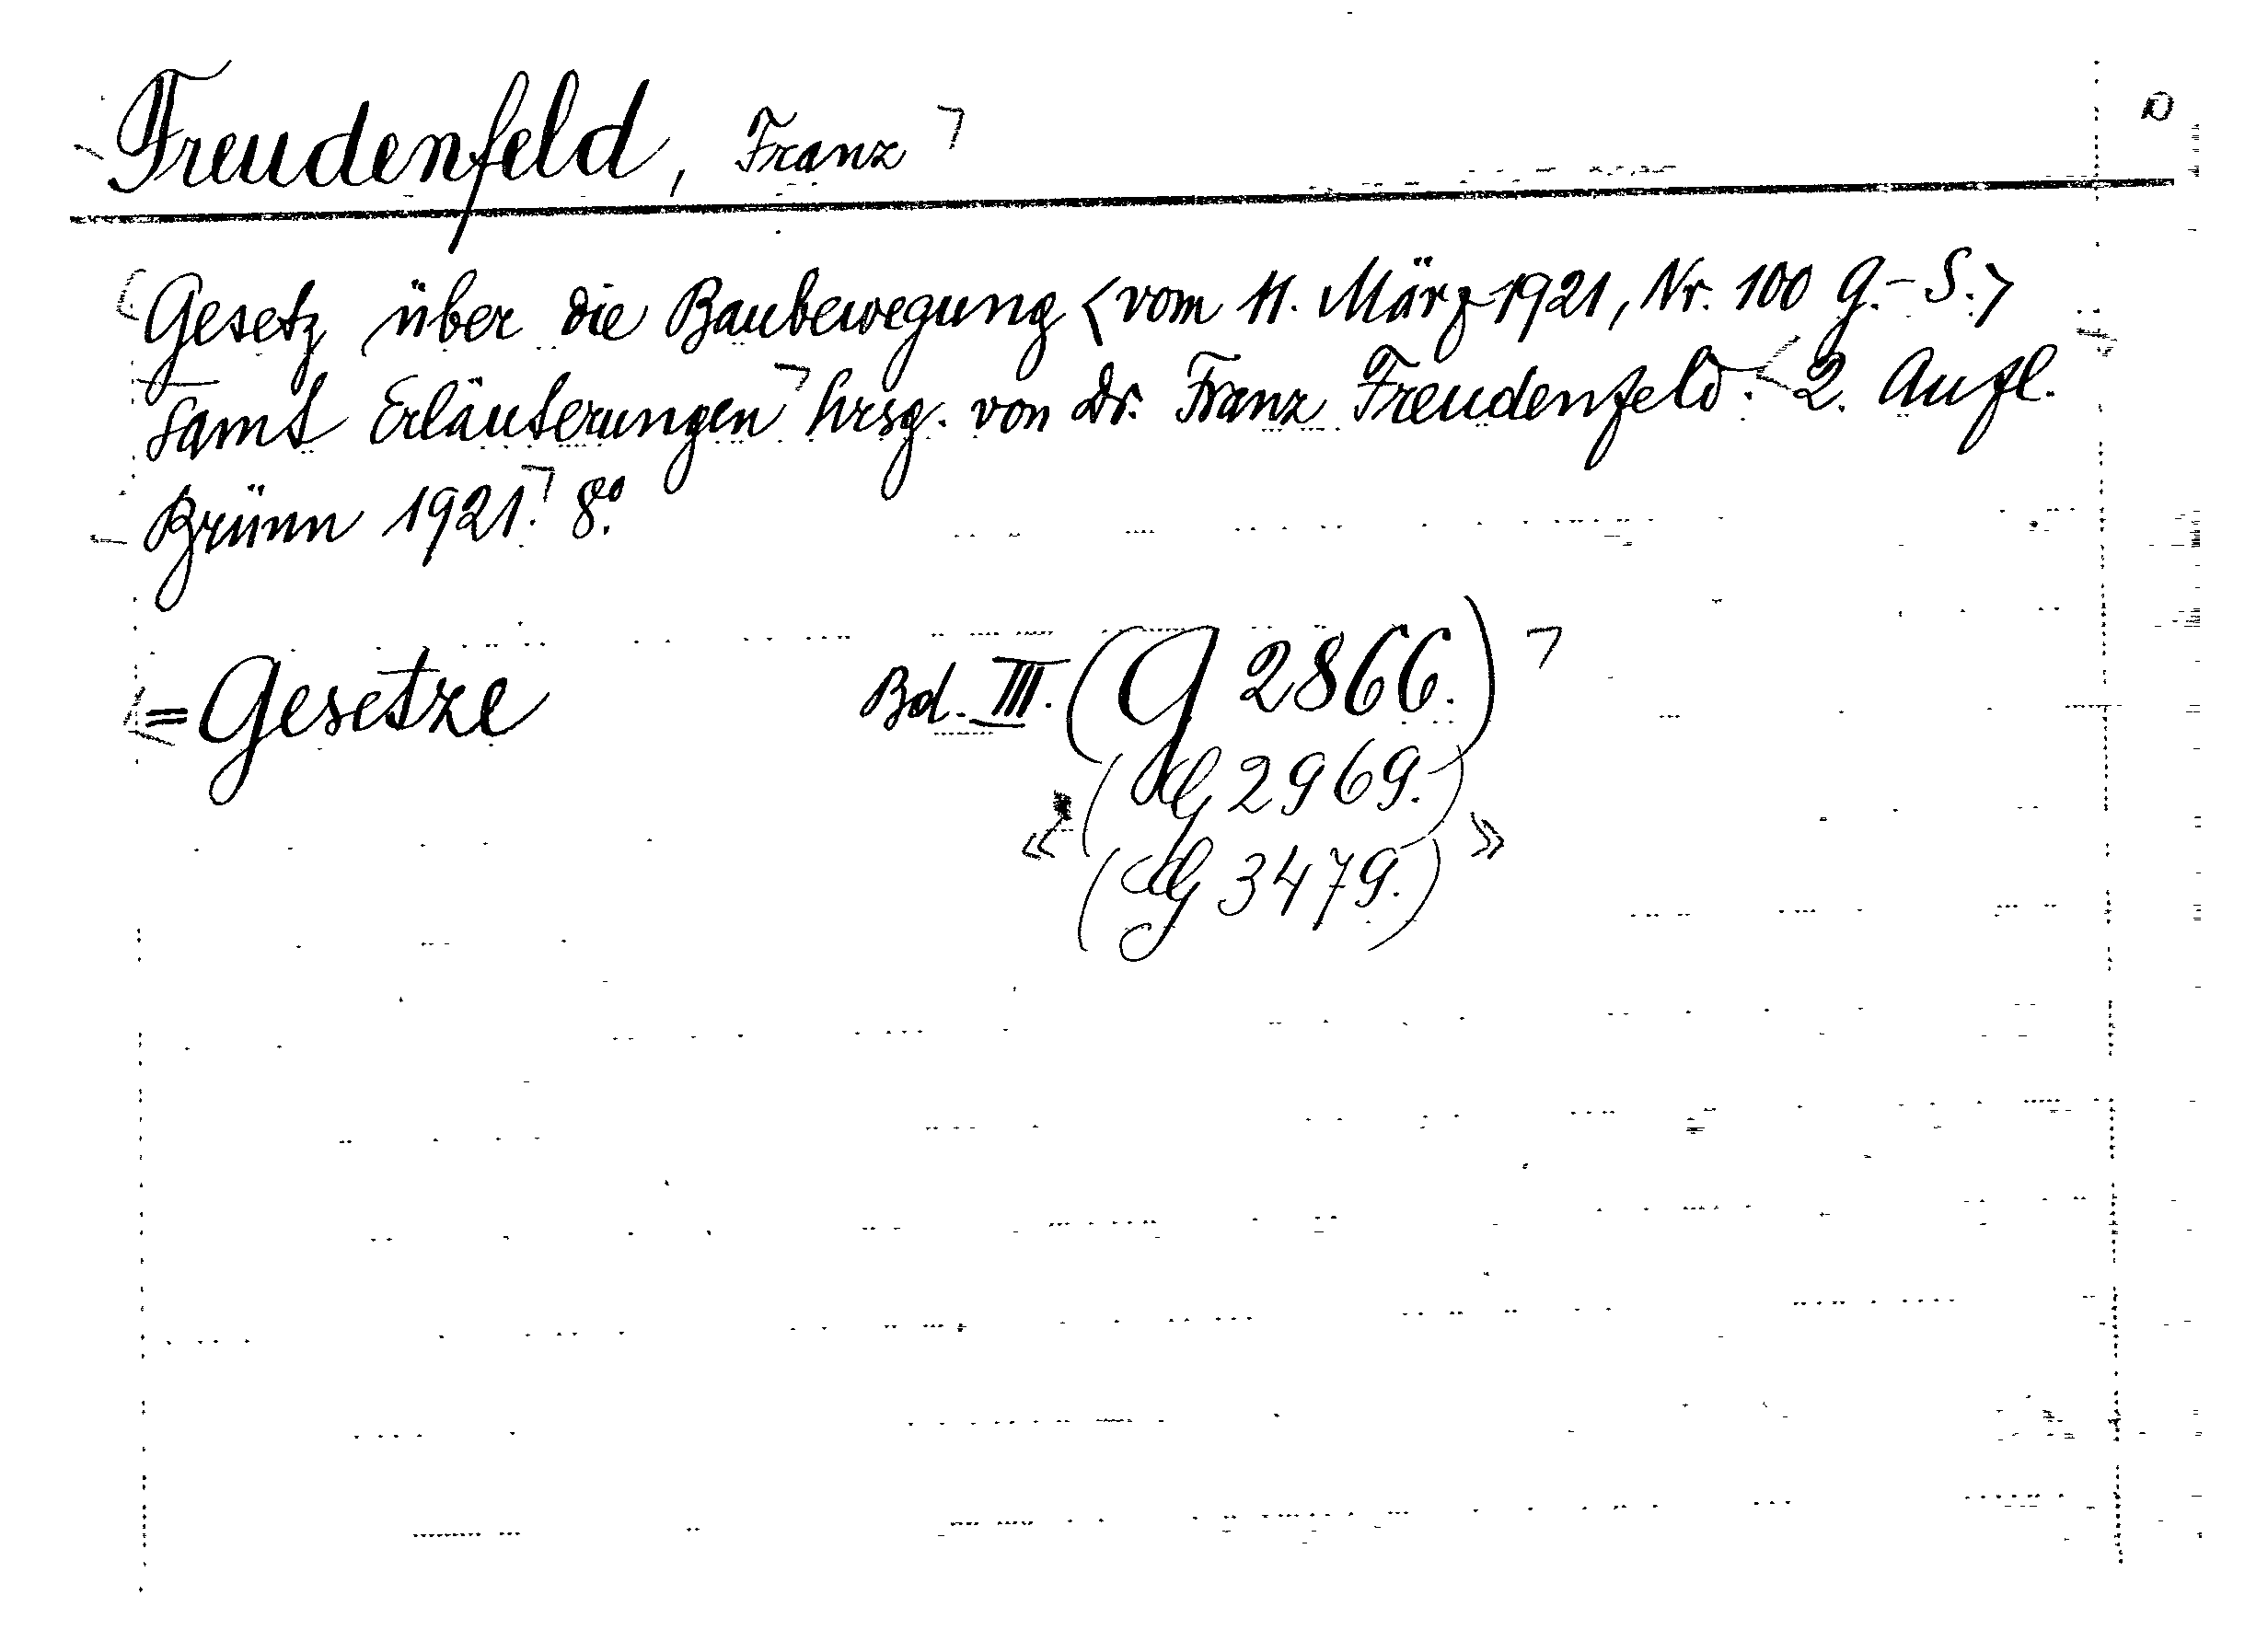 Freudenfeld, Franz
Gesetz über die Baubewegung <vom 11. März 1921, Nr. 100 G.-S.>
samt Erläuterungen hrsg. von Dr. Franz Freudenfeld. 2. Aufl.
Brünn 1921. 8°.
=Gesetze Bd. III. (G 2866.)
(G 2969.)
« (G 3479.) »